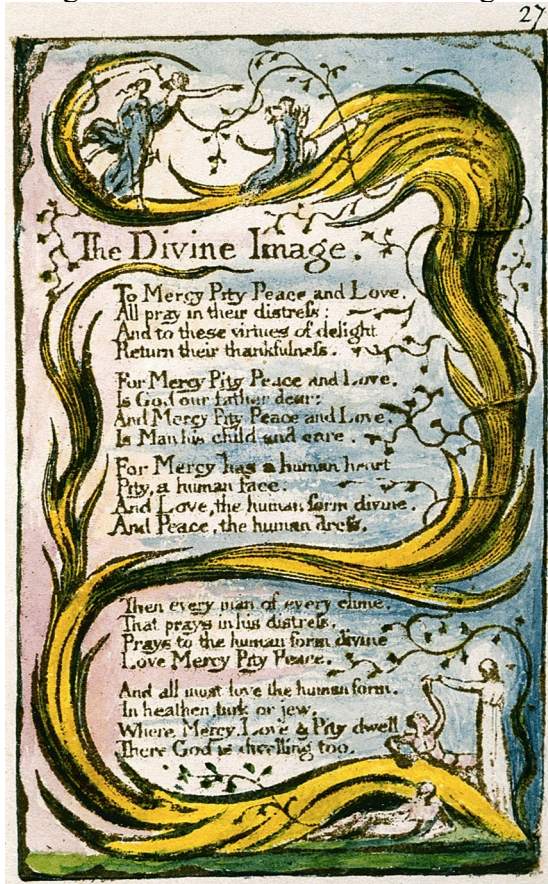 27
The Divine Image.
To Mercy Pity Peace and Love.
All pray in their distreſs:
And to these virtues of delight
Return their thankfulneſs.
For Mercy Pity Peace and Love.
Is God our father dear:
And Mercy Pity Peace and Love.
Is Man his child and care.
For Mercy has a human heart
Pity, a human face:
And Love, the human form divine.
And Peace, the human dreſs.
Then every man of every clime.
That prays in his distreſs.
Prays to the human form divine
Love Mercy Pity Peace.
And all must love the human form.
In heathen, turk or jew.
Where Mercy, Love & Pity dwell
There God is dwelling too.